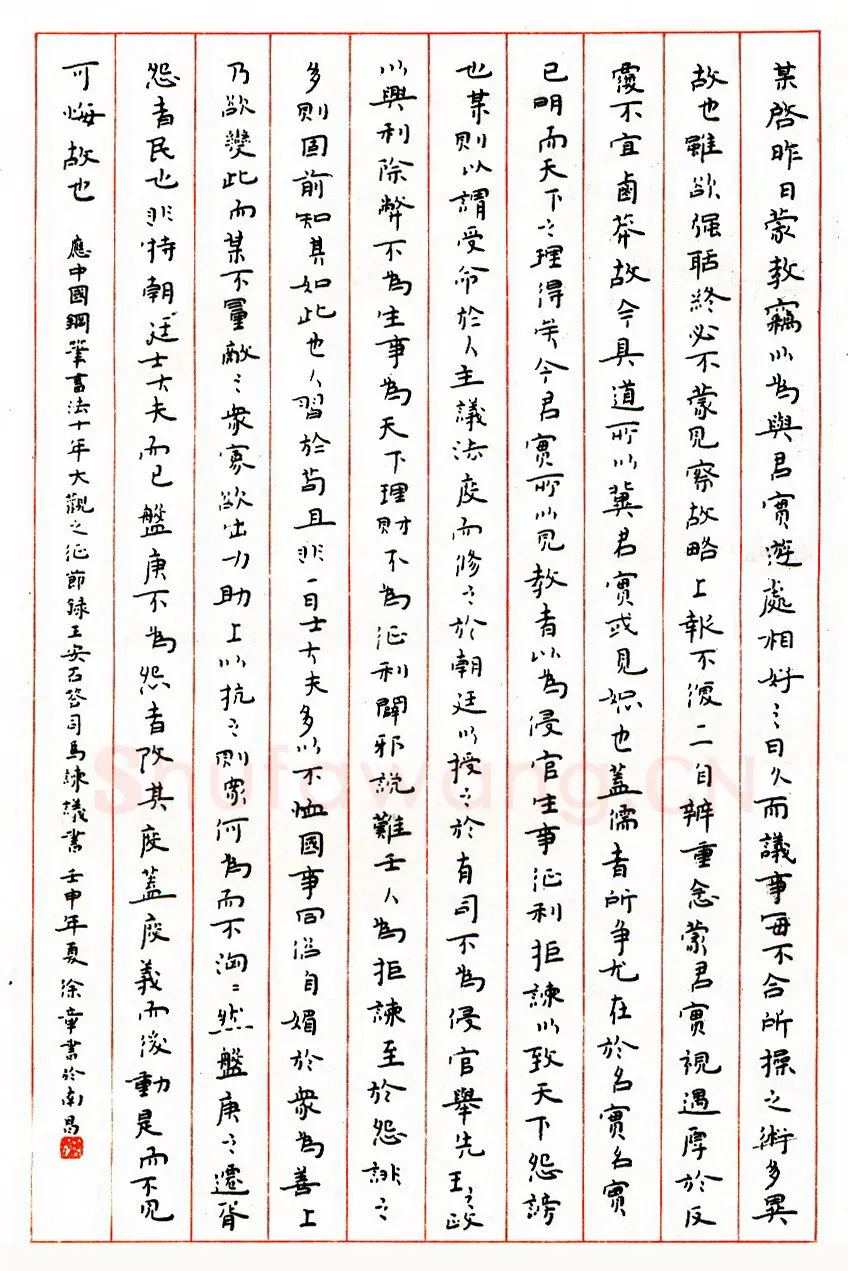 某啓昨日蒙教竊以為與君實遊處相好之日久而議事每不合所操之術多異
故也雖欲强聒終必不蒙見察故略上報不復一一自辨重念蒙君實視遇厚於反
覆不宜鹵莽故今具道所以冀君實或見恕也蓋儒者所争尤在於名實名實
已明而天下之理得矣今君實所以見教者以為侵官生事征利拒諫以致天下怨謗
也某則以謂受命於人主議法度而修之於朝廷以授之於有司不為侵官舉先王之政
以興利除弊不為生事為天下理財不為征利闢邪說難壬人不為拒諫至於怨誹之
多則固前知其如此也人習於苟且非一日士大夫多以不恤國事同俗自媚於衆為善上
乃欲變此而某不量敵之衆寡欲出力助上以抗之則衆何為而不洶〻然盤庚之遷胥
怨者民也非特朝廷士大夫而已盤庚不為怨者改其度蓋度義而後動是而不見
可悔故也 應中國鋼筆書法十年大觀之征節録王安石答司馬諫議書 壬申年夏 徐章書於南昌
Shufawang.CN